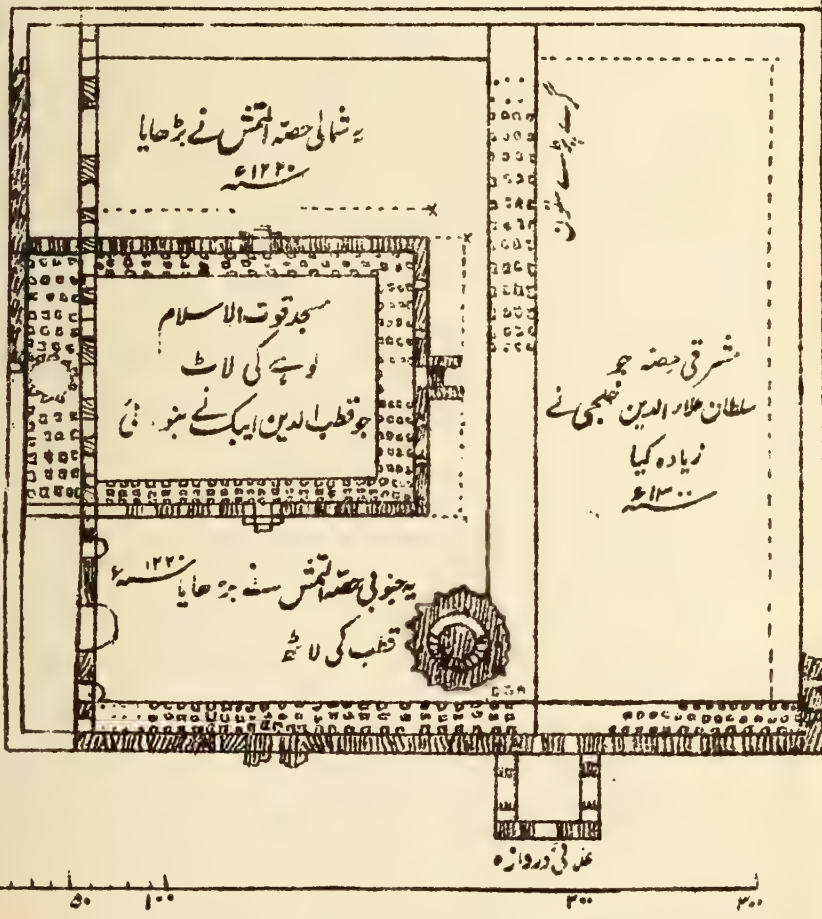 یہ شمالی حصہ التمش نے بڑھایا
۱۲۲۰ء
گرے پڑے ستون
مسجد قوت الاسلام
لوہے کی لاٹ
جو قطب الدین ایبک نے بنوائی
مشرقی حصہ جو
سلطان علاء الدین خلجی نے
زیادہ کیا
۱۳۰۰ء
یہ جنوبی حصہ التمش نے بڑھایا ۱۲۲۰ء
قطب کی لاٹھ
علائی دروازہ
۵۰ ۱۰۰ ۲۰۰ ۳۰۰